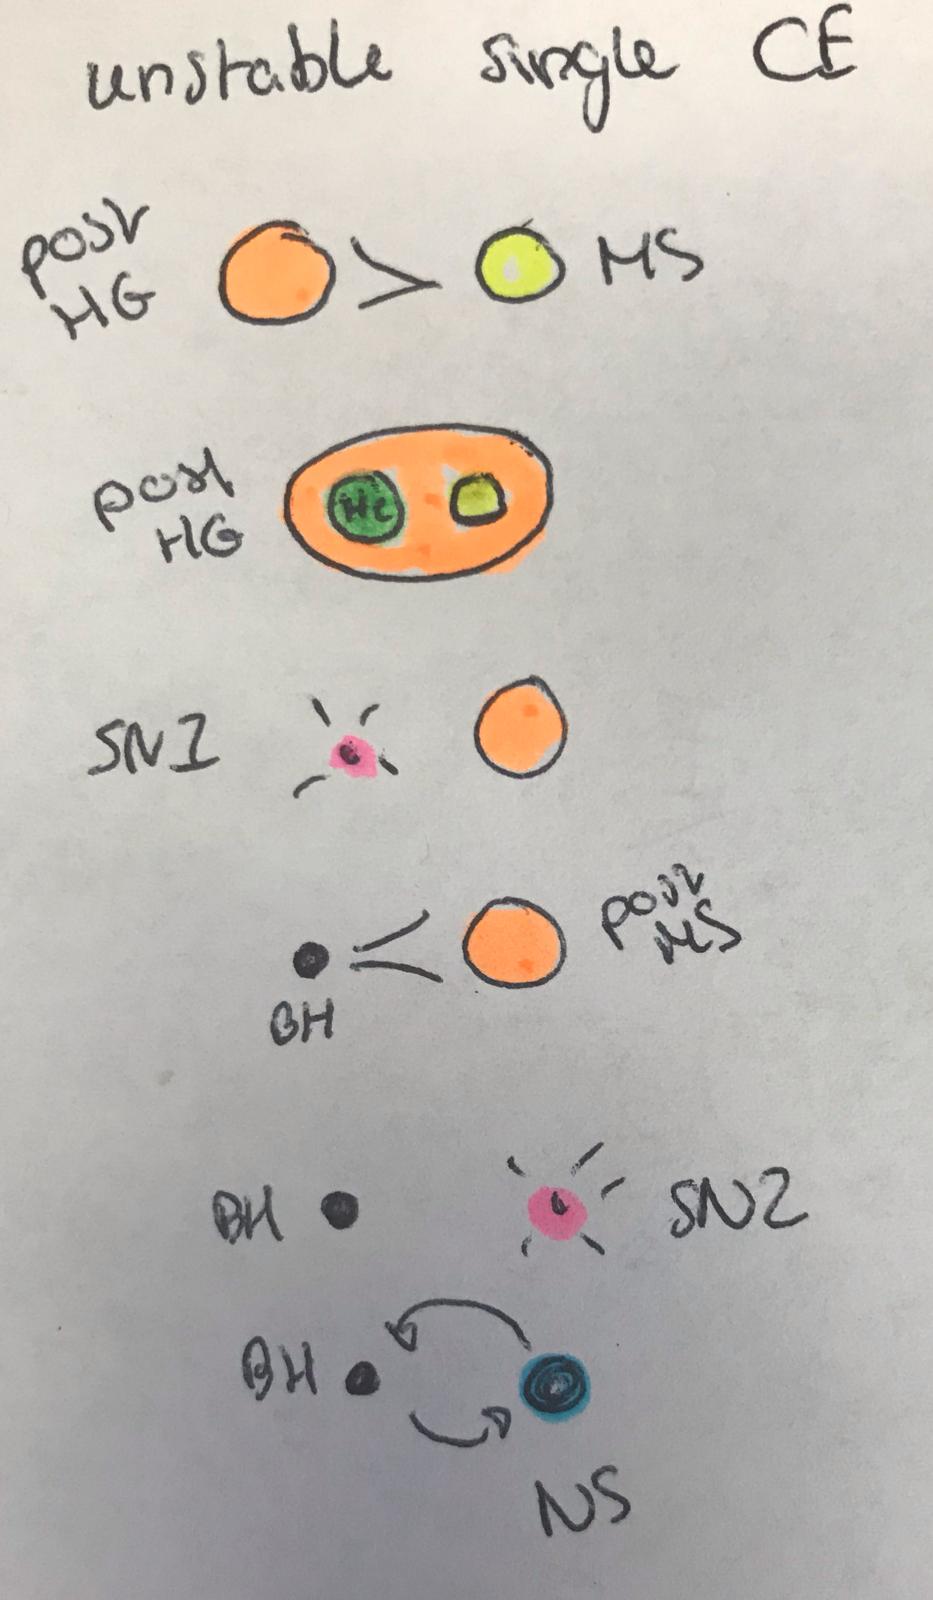 unstable single CE
post
HG
MS
post
HG
He
SN1
post
MS
BH
BH
SN2
BH
NS